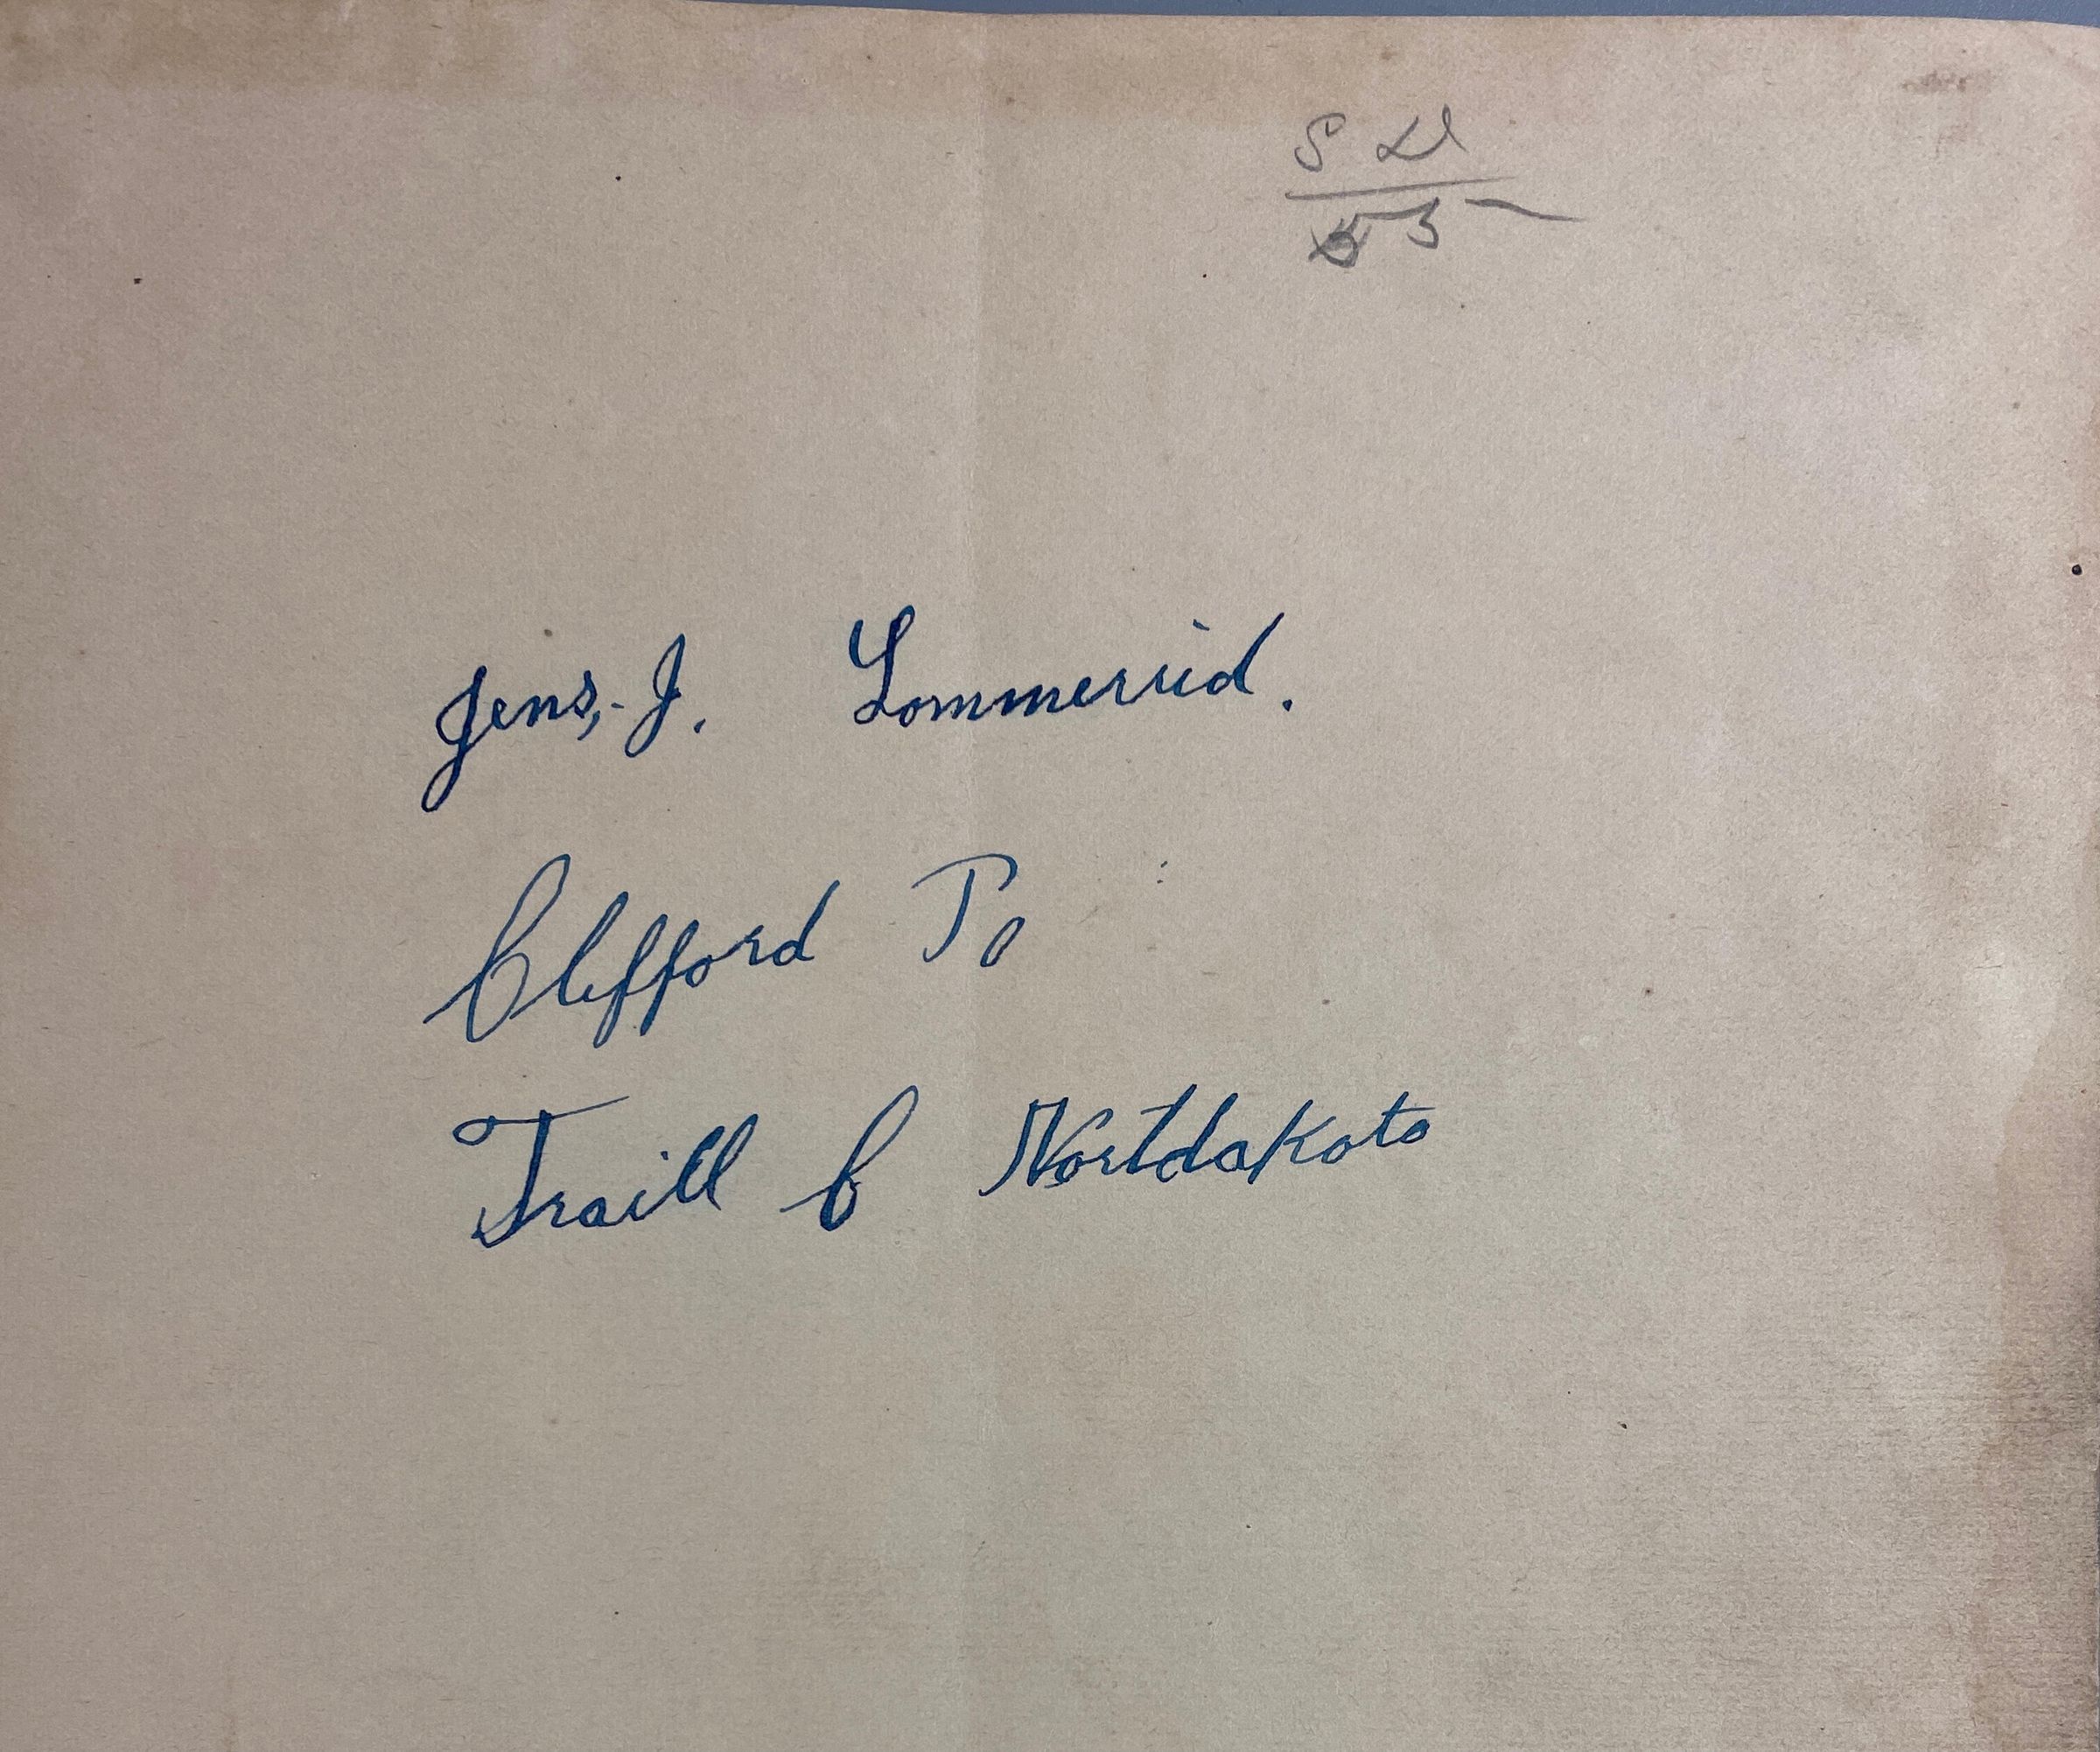 S D
55
Jens, J. Lommeruid.
Clifford Po
Traill C Nortdakota